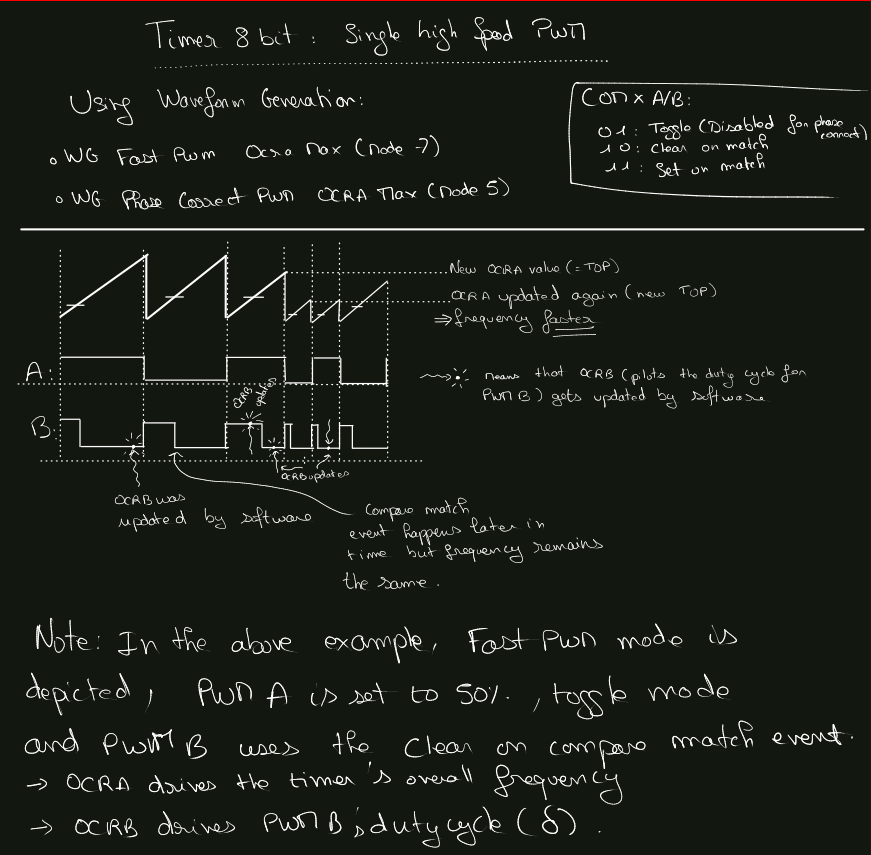 Timer 8 bit : Single high speed PWM
Using Waveform Generation:
COM x A/B:
01 : Toggle (Disabled for phase correct)
10 : Clear on match
11 : Set on match
o WG Fast Pwm Ocra Max (Mode 7)
o WG Phase Correct PWM OCRA Max (Mode 5)
New OCRA value (= TOP)
OCRA updated again (new TOP)
⇒ frequency faster
A:
means that OCRB (pilots the duty cycle for
PWM B) gets updated by software
OCRB
updates
B:
OCRB updates
OCRB was
updated by software
Compare match
event happens later in
time but frequency remains
the same.
Note: In the above example, Fast PWM mode is
depicted, PWM A is set to 50%, toggle mode
and PWM B uses the Clear on compare match event.
→ OCRA drives the timer's overall frequency
→ OCRB drives PWM B's duty cycle (δ).